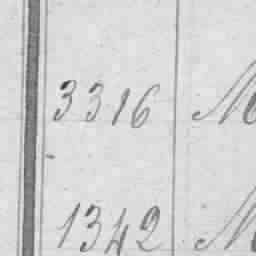 3316 M
1342 M